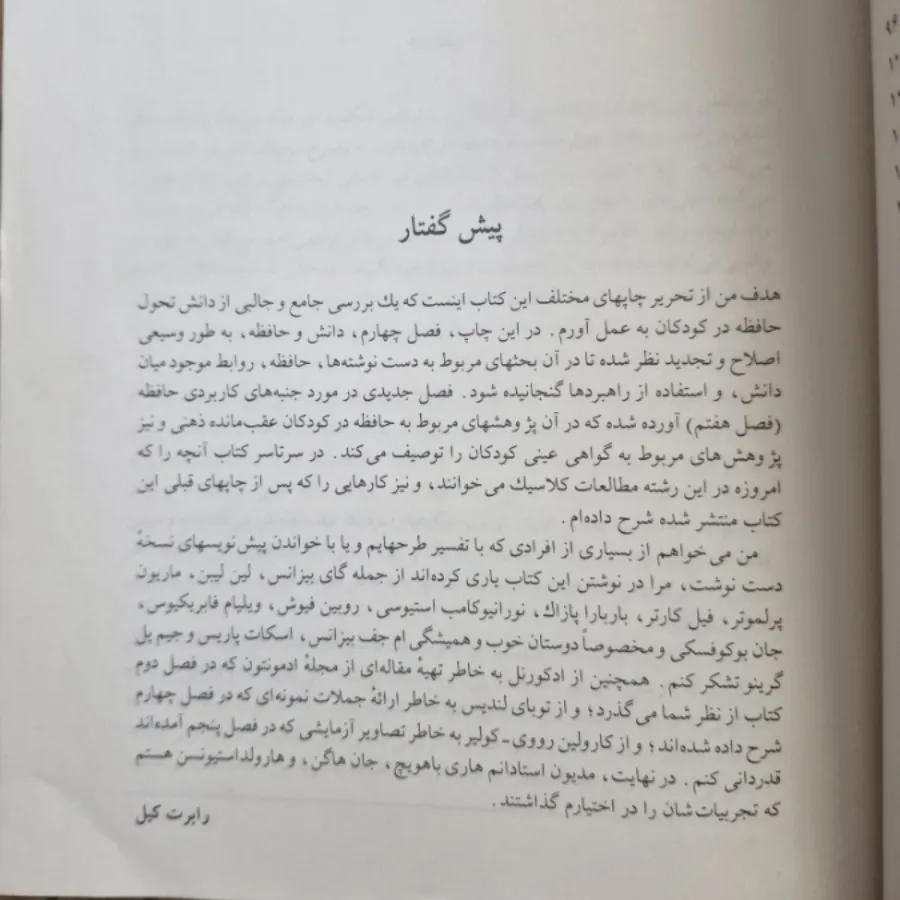 پیش گفتار
هدف من از تحریر چاپهای مختلف این کتاب اینست که یك بررسی جامع و جالبی از دانش تحول
حافظه در کودکان به عمل آورم. در این چاپ، فصل چهارم، دانش و حافظه، به طور وسیعی
اصلاح و تجدید نظر شده تا در آن بحثهای مربوط به دست نوشته‌ها، حافظه، روابط موجود میان
دانش، و استفاده از راهبردها گنجانیده شود. فصل جدیدی در مورد جنبه‌های کاربردی حافظه
(فصل هفتم) آورده شده که در آن پژوهشهای مربوط به حافظه در کودکان عقب‌مانده ذهنی و نیز
پژوهش‌های مربوط به گواهی عینی کودکان را توصیف می‌کند. در سرتاسر کتاب آنچه را که
امروزه در این رشته مطالعات کلاسیك می‌خوانند، و نیز کارهایی را که پس از چاپهای قبلی این
کتاب منتشر شده شرح داده‌ام.
من می‌خواهم از بسیاری از افرادی که با تفسیر طرحهایم و یا با خواندن پیش‌نویسهای نسخهٔ
دست نوشت، مرا در نوشتن این کتاب یاری کرده‌اند از جمله گای بیزانس، لین لیبن، ماریون
پرلموتر، فیل کارتر، باربارا پازاك، نورانیوکامب استیوسی، روبین فیوش، ویلیام فابریکیوس،
جان بوکوفسکی و مخصوصاً دوستان خوب و همیشگی ام جف بیزانس، اسکات پاریس و جیم پل
گرینو تشکر کنم. همچنین از ادکورنل به خاطر تهیهٔ مقاله‌ای از مجلهٔ ادمونتون که در فصل دوم
کتاب از نظر شما می‌گذرد؛ و از توبای لندیس به خاطر ارائهٔ جملات نمونه‌ای که در فصل چهارم
شرح داده شده‌اند؛ و از کارولین رووی-کولیر به خاطر تصاویر آزمایشی که در فصل پنجم آمده‌اند
قدردانی کنم. در نهایت، مدیون استادانم هاری باهویچ، جان هاگن، و هارولداستیونسن هستم
که تجربیات‌شان را در اختیارم گذاشتند.
رابرت کیل